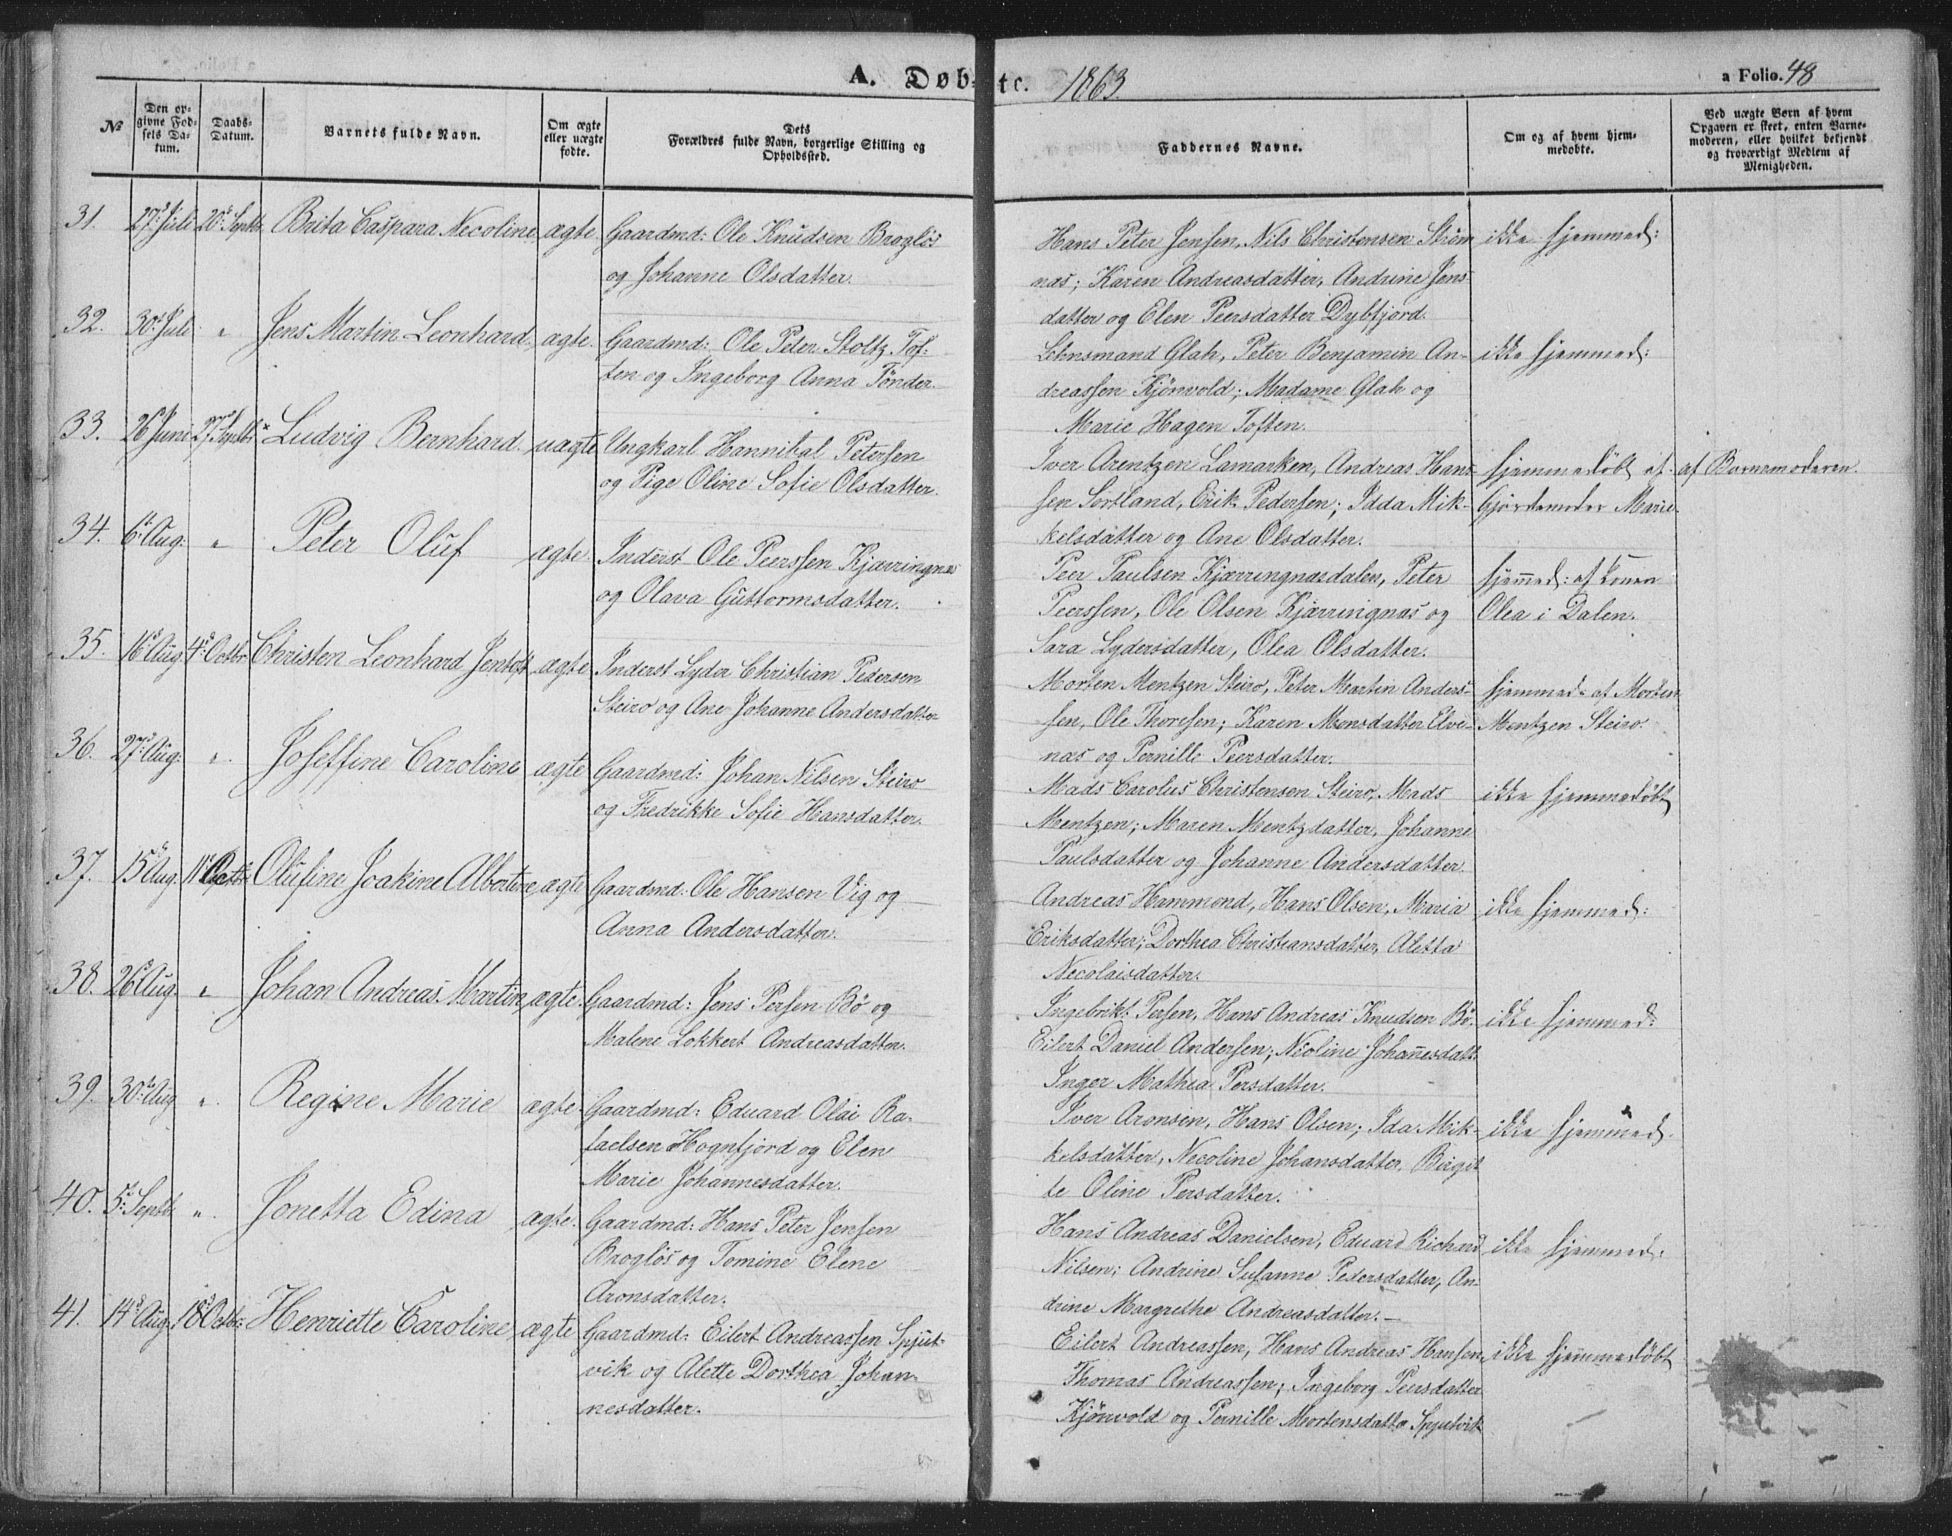 A. Døbte. 1863. a Folio. 48
№
Den opgivne Fodsels Datum.
Daabs-Datum.
Barnets fulde Navn.
Om ægte eller uægte fodte.
Dets Forældres fulde Navn, borgerlige Stilling og Opholdssted.
Faddernes Navne.
Om og af hvem hjemmedobte.
Ved uægte Born af hvem Opgaven er skeet, enten Barnemoderen, eller hvilket bekjendt og troværdigt Medlem af Menigheden.
31. 27de Juli 20de Septbr. Brita Caspara Necoline ægte Gaardmd: Ole Knudsen Brogløs
og Johanne Olsdatter.
Hans Peter Jensen, Nils Christensen Strøm ikke hjemmed:
næs; Karen Andreasdatter, Andrine Jens-
datter og Elen Peersdatter Dybfjord.
32. 30te Juli " Jens Martin Leonhard ægte. Gaardmd: Ole Peter Stoltz Tof-
ten og Ingeborg Anna Tönder
Lehnsmand Glah, Peter Benjamin An- ikke hjemmed:
dreassen Kjönvold; Madame Glah og
Marie Hagen Toften.
33. 26 Juni 27de Septbr Ludvig Bernhard. uægte Ungkarl Hannibal Petersen
og Pige Oline Sofie Olsdatter.
Iver Arentzen Lamarken, Andreas Han- hjemmedöbt af af Barnemoderen.
sen Sortland, Erik Pedersen; Idda Mik- Gjordemoder Marie.
kelsdatter og Ane Olsdatter.
34. 6te Aug. " Peter Oluf ægte. Inderst Ole Peerssen Kjærringnæs
og Olava Guttormsdatter.
Peer Paulsen Kjærringnæsdalen, Peter hjemmed: af Konen
Peerssen, Ole Olsen Kjærringnæs og Olea i Dalen.
Sara Lydersdatter, Olea Olsdatter.
35. 16de Aug. 4de Octbr Christen Leonhard Jentoft ægte Inderst Lyder Christian Pedersen
Steiro og Ane Johanne Andersdatter
Morten Mentzen Steiro, Peter Martin Anders- hjemmed: af Morten
sen, Ole Thoresen; Karen Monsdatter Elve- Mentzen Steiro.
næs og Pernille Peersdatter.
36. 27de Aug. " Joseffine Caroline ægte Gaardmd: Johan Nilsen Steiro
og Fredrikke Sofie Hansdatter.
Mads Carolus Christensen Steiro, Mads ikke hjemmedöbt
Mentzen; Maren Mentzdatter, Johanne
Paulsdatter og Johanne Andersdatter.
37. 15de Aug. 11te Octbr. Olufine Joakine Albertine ægte Gaardmd: Ole Hansen Vig og
Anna Andersdatter.
Andreas Hammond, Hans Olsen, Maria ikke hjemmed:
Eriksdatter; Dorthea Christiansdatter, Aletta
Necolaisdatter.
38. 26de Aug. " Johan Andreas Martin ægte. Gaardmd: Jens Persen Bö og
Malene Lokkert Andreasdatter.
Ingebrikt Persen, Hans Andreas Knudsen Bö. ikke hjemmed:
Eilert Daniel Andersen; Nicoline Johannesdatt.
Inger Mathea Persdatter.
39. 30te Aug " Regine Marie ægte. Gaardmd: Eduard Olai Ra-
faelsen Hognfjord og Elen
Marie Johannesdatter.
Iver Aronsen, Hans Olsen; Ida Mik- ikke hjemmed.
kelsdatter, Necoline Johansdatter, Birgit
te Oline Persdatter.
40. 5te Septbr. " Jonetta Edina ægte. Gaardmd: Hans Peter Jensen
Brogløs og Tomine Elene
Aronsdatter.
Hans Andreas Danielsen, Eduard Richard ikke hjemmed:
Nilsen; Andrine Susanne Pedersdatter, An-
drine Margrethe Andreasdatter.—
41. 14de Aug. 18de Octbr. Henriette Caroline ægte Gaardmd: Eilert Andreassen Spjut-
vik og Alette Dorthea Johan-
nesdatter.
Eilert Andreassen, Hans Andreas Hansen, ikke hjemmedöbt
Thomas Andreassen; Ingeborg Peersdatter
Kjönvold og Pernille Mortensdatter Spjutvik